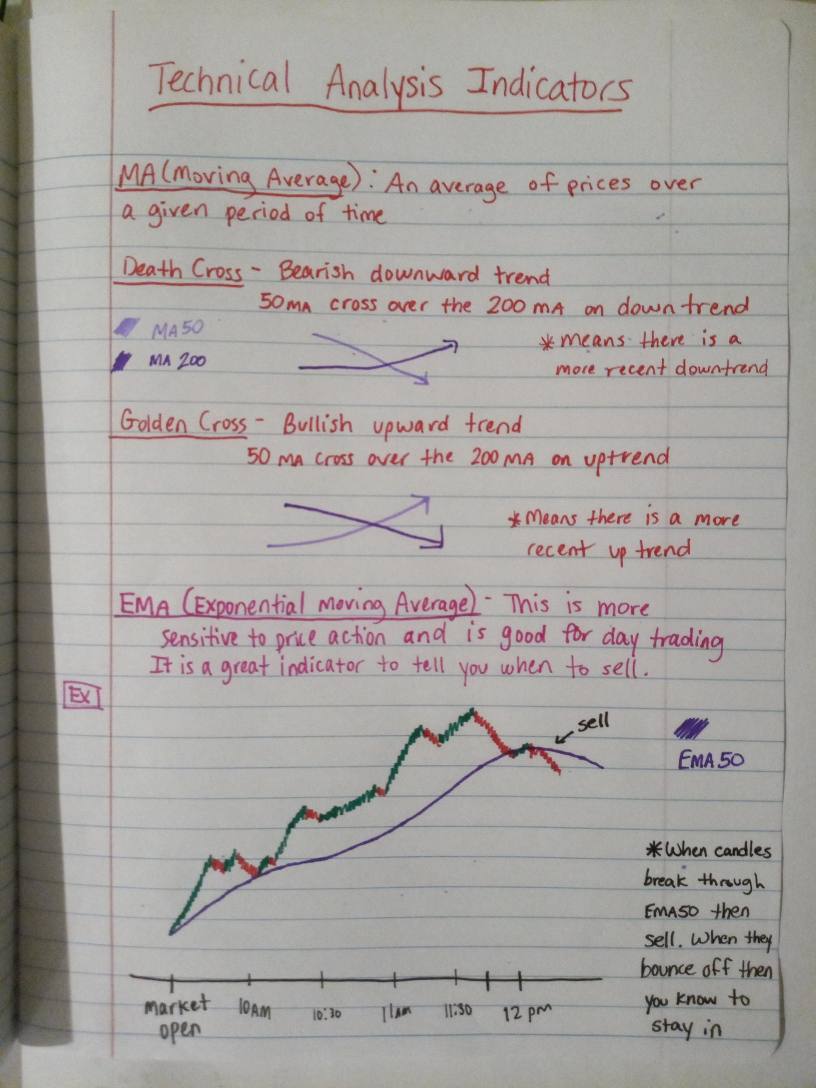 Technical Analysis Indicators
MA (Moving Average): An average of prices over
a given period of time
Death Cross - Bearish downward trend
50 MA cross over the 200 MA on down trend
MA 50
MA 200
* means there is a
more recent downtrend
Golden Cross - Bullish upward trend
50 MA cross over the 200 MA on uptrend
* Means there is a more
recent up trend
EMA (Exponential Moving Average) - This is more
sensitive to price action and is good for day trading
It is a great indicator to tell you when to sell.
Ex
sell
EMA 50
* When candles
break through
EMA50 then
sell. When they
bounce off then
you know to
stay in
market
open
10AM
10:30
11am
11:30
12 pm